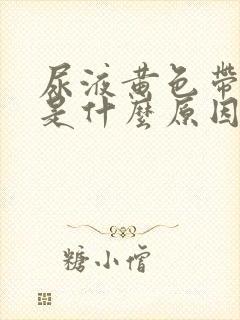 尿液黄色帶
是什麼原因
糖小僧